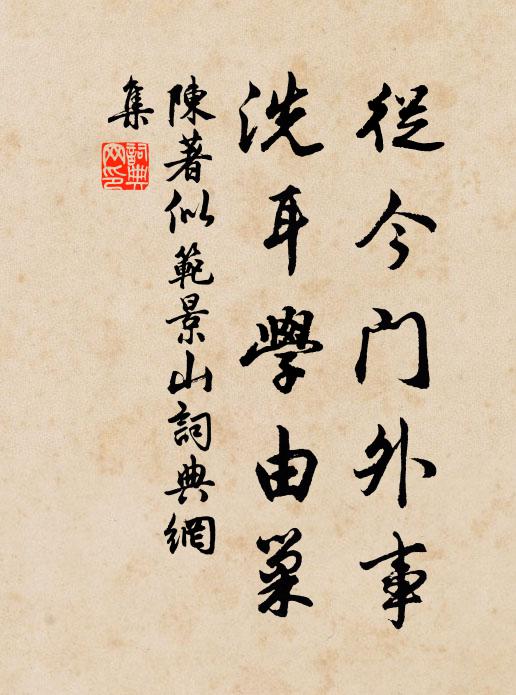 從今門外事
洗耳學由巢
陳著似範景山詞典網
集
詞典网印